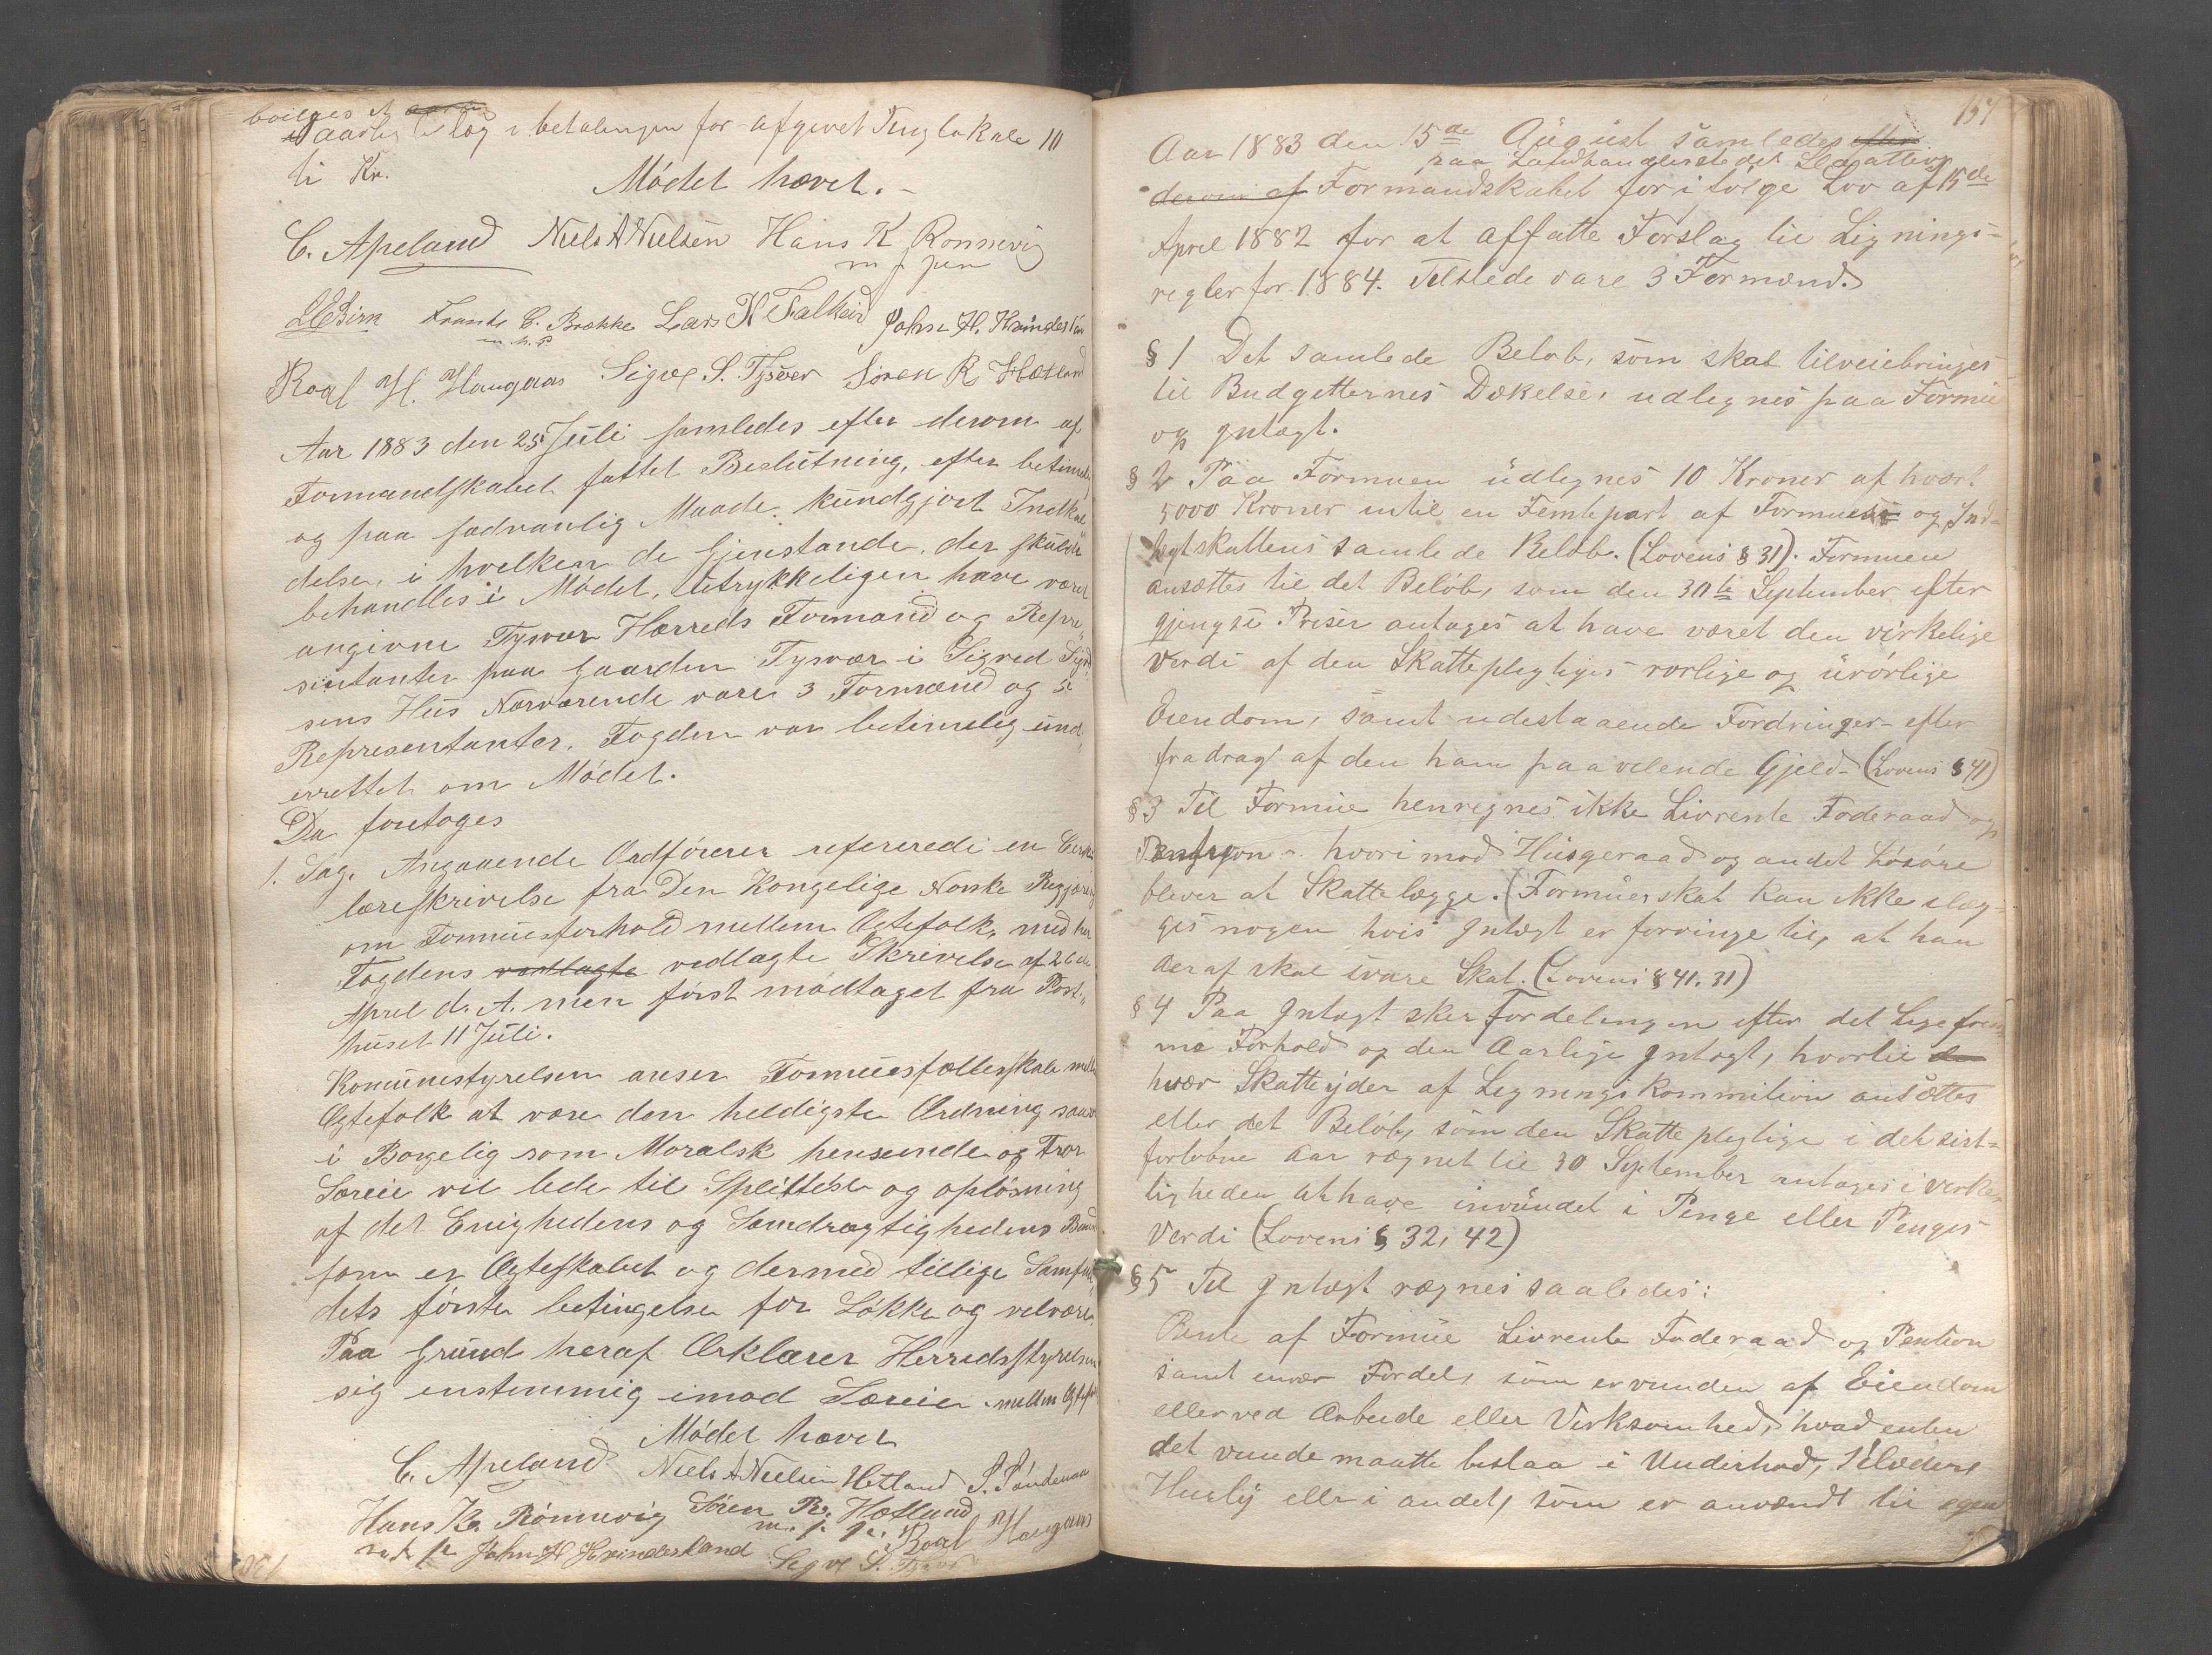 aarlig tillæg i betalingen for afgivet Tinglokale 10
ti Kr.
Mödet hævet. -
C. Apeland Niels A Nielsen Hans K Ronnevig
m f pen
Frants C. Brække Lars K Falkeid John H.
m. f. P.
Roal H. Haugaas Sigve S. Tysver Sören R Hætland
Aar 1883 den 25 Juli samledes efter derom af
Formandskabet fattet Beslutning, efter betimelig
og paa sædvanlig Maade kundgjort Indkal
delse, i hvelken de Gjenstande, der skulde
behandles i Mödet, utrykkeligen have været
angivne Tysvær Herreds Formænd og Repre
sentanter paa Gaarden Tysvær i Sigved
sens Hus Nærværende vare 3 Formænd og 5
Representanter. Fogden var betimelig und
errettet om Mödet.
Da foretoges
1. Sag. Angaaende Ordförerer refererede en Cirku
læreskrivelse fra Den Kongelige Norske Regjæring
om Formuesforhold mellem Ægtefolk, med hr
Fogdens vedlagte vedlagte Skrivelse af 26de
April d. A. men först modtaget fra Post-
huset 11 Juli.
Komunestyrelsen anser Formuesfællesskab mellem
Ægtefolk at være den heldigste Ordning saavel
i Borgelig som Moralsk henseende og Tror
Særeie vil lede til Splittelse og oplösning
af det Enighedens og Samdrægtighedens Baand
som er Ægteskabet og dermed tillige Samfun
dets förste betingelse for Lökke og velvære.
Paa Grund heraf Erklærer Herredsstyrelsen
sig enstemmig imod Særeie mellem Ægtefolk
Mödet hævet
C. Apeland Niels A Nielsen Hetland S.
Hans K. Rönnevig Sören R. Hætland
m. f. P. John H Kvindesland m. p. p. Roal Haugaas
Sigve S. Tysver
157
Aar 1883 den 15de August samledes efter
paa Landhandlerstedet
derom af Formandskabet for i fölge Lov af 15de
April 1882 for at affatte Forslag til Lignings-
regler for 1884. Tilstede vare 3 Formænd.
§ 1 Det samlede Beløb, som skal tilveiebringes
til Budgetternes Dækelse, udlignes paa Formue
og Intægt.
§ 2 Paa Formuen udlignes 10 Kroner af hvert
5000 Kroner intil en Femtepart af Formues og Ind-
tægtskattens samlede Beløb. (Lovens § 31). Formuen
ansættes til det Beløb, som den 30te September efter
gjengse Priser antages at have været den virkelige
Verdi af den Skattepligtiges rørlige og urørlige
Eiendom, samt udestaaende Fordringer efter
fradrag af den ham paavilende Gjeld - (Lovens § 41)
§ 3 Til Formue henregnes ikke Livrente Føderaad og
Pentsjon - hvorimod Husgeraad og andet Løsøre
bliver at Skattelægge. (Formueskat kan ikke ilæg-
ges nogen hvis Intægt er forringe til, at han
deraf skal svare Skat. (Lovens § 41. 31)
§ 4 Paa Intægt sker Fordelingen efter det Ligefrem
me Forhold og den Aarlige Intægt, hvortil de
hver Skatteyder af Ligningskommition ansættes
eller det Beløb, som den Skattepligtige i det sist-
forløbne Aar rægnet til 30 September antages i virke-
ligheden at have invundet i Penge eller Penges
Verdi (Lovens § 32, 42)
§ 5 Til Intægt rægnes saaledes:
Rente af Formue Livrente Føderaad og Pention
samt enver Fordel, som er vunden af Eiendom
eller ved Arbeide eller Virksomhed, hvad enten
det vunde maatte bestaa i Underhod, Klæder
Husly elle i andet, som er anvendt til egen